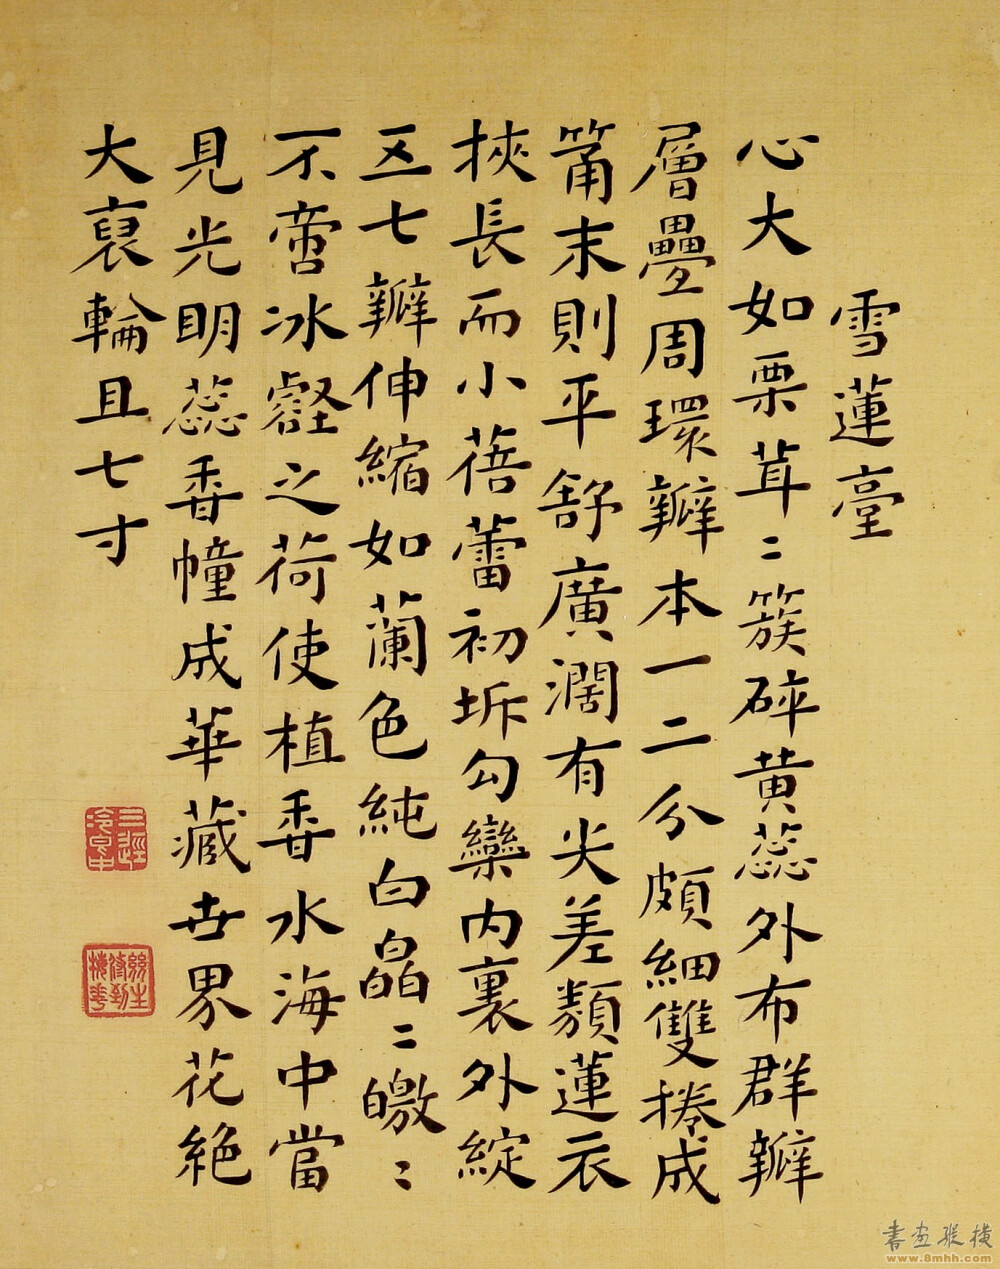 雪蓮臺
心大如栗茸二簇碎黄蕊外布群瓣
層疊周環瓣本一二分頗細雙捲成
筩末則平舒廣濶有尖差類蓮衣
挾長而小蓓蕾初坼勾欒内裏外綻
五七瓣伸縮如蘭色純白皛二皦二
不啻冰壑之荷使植香水海中當
見光明蕊香幢成華藏世界花絶
大裒輪且七寸
書画縱横
www.8mhh.com